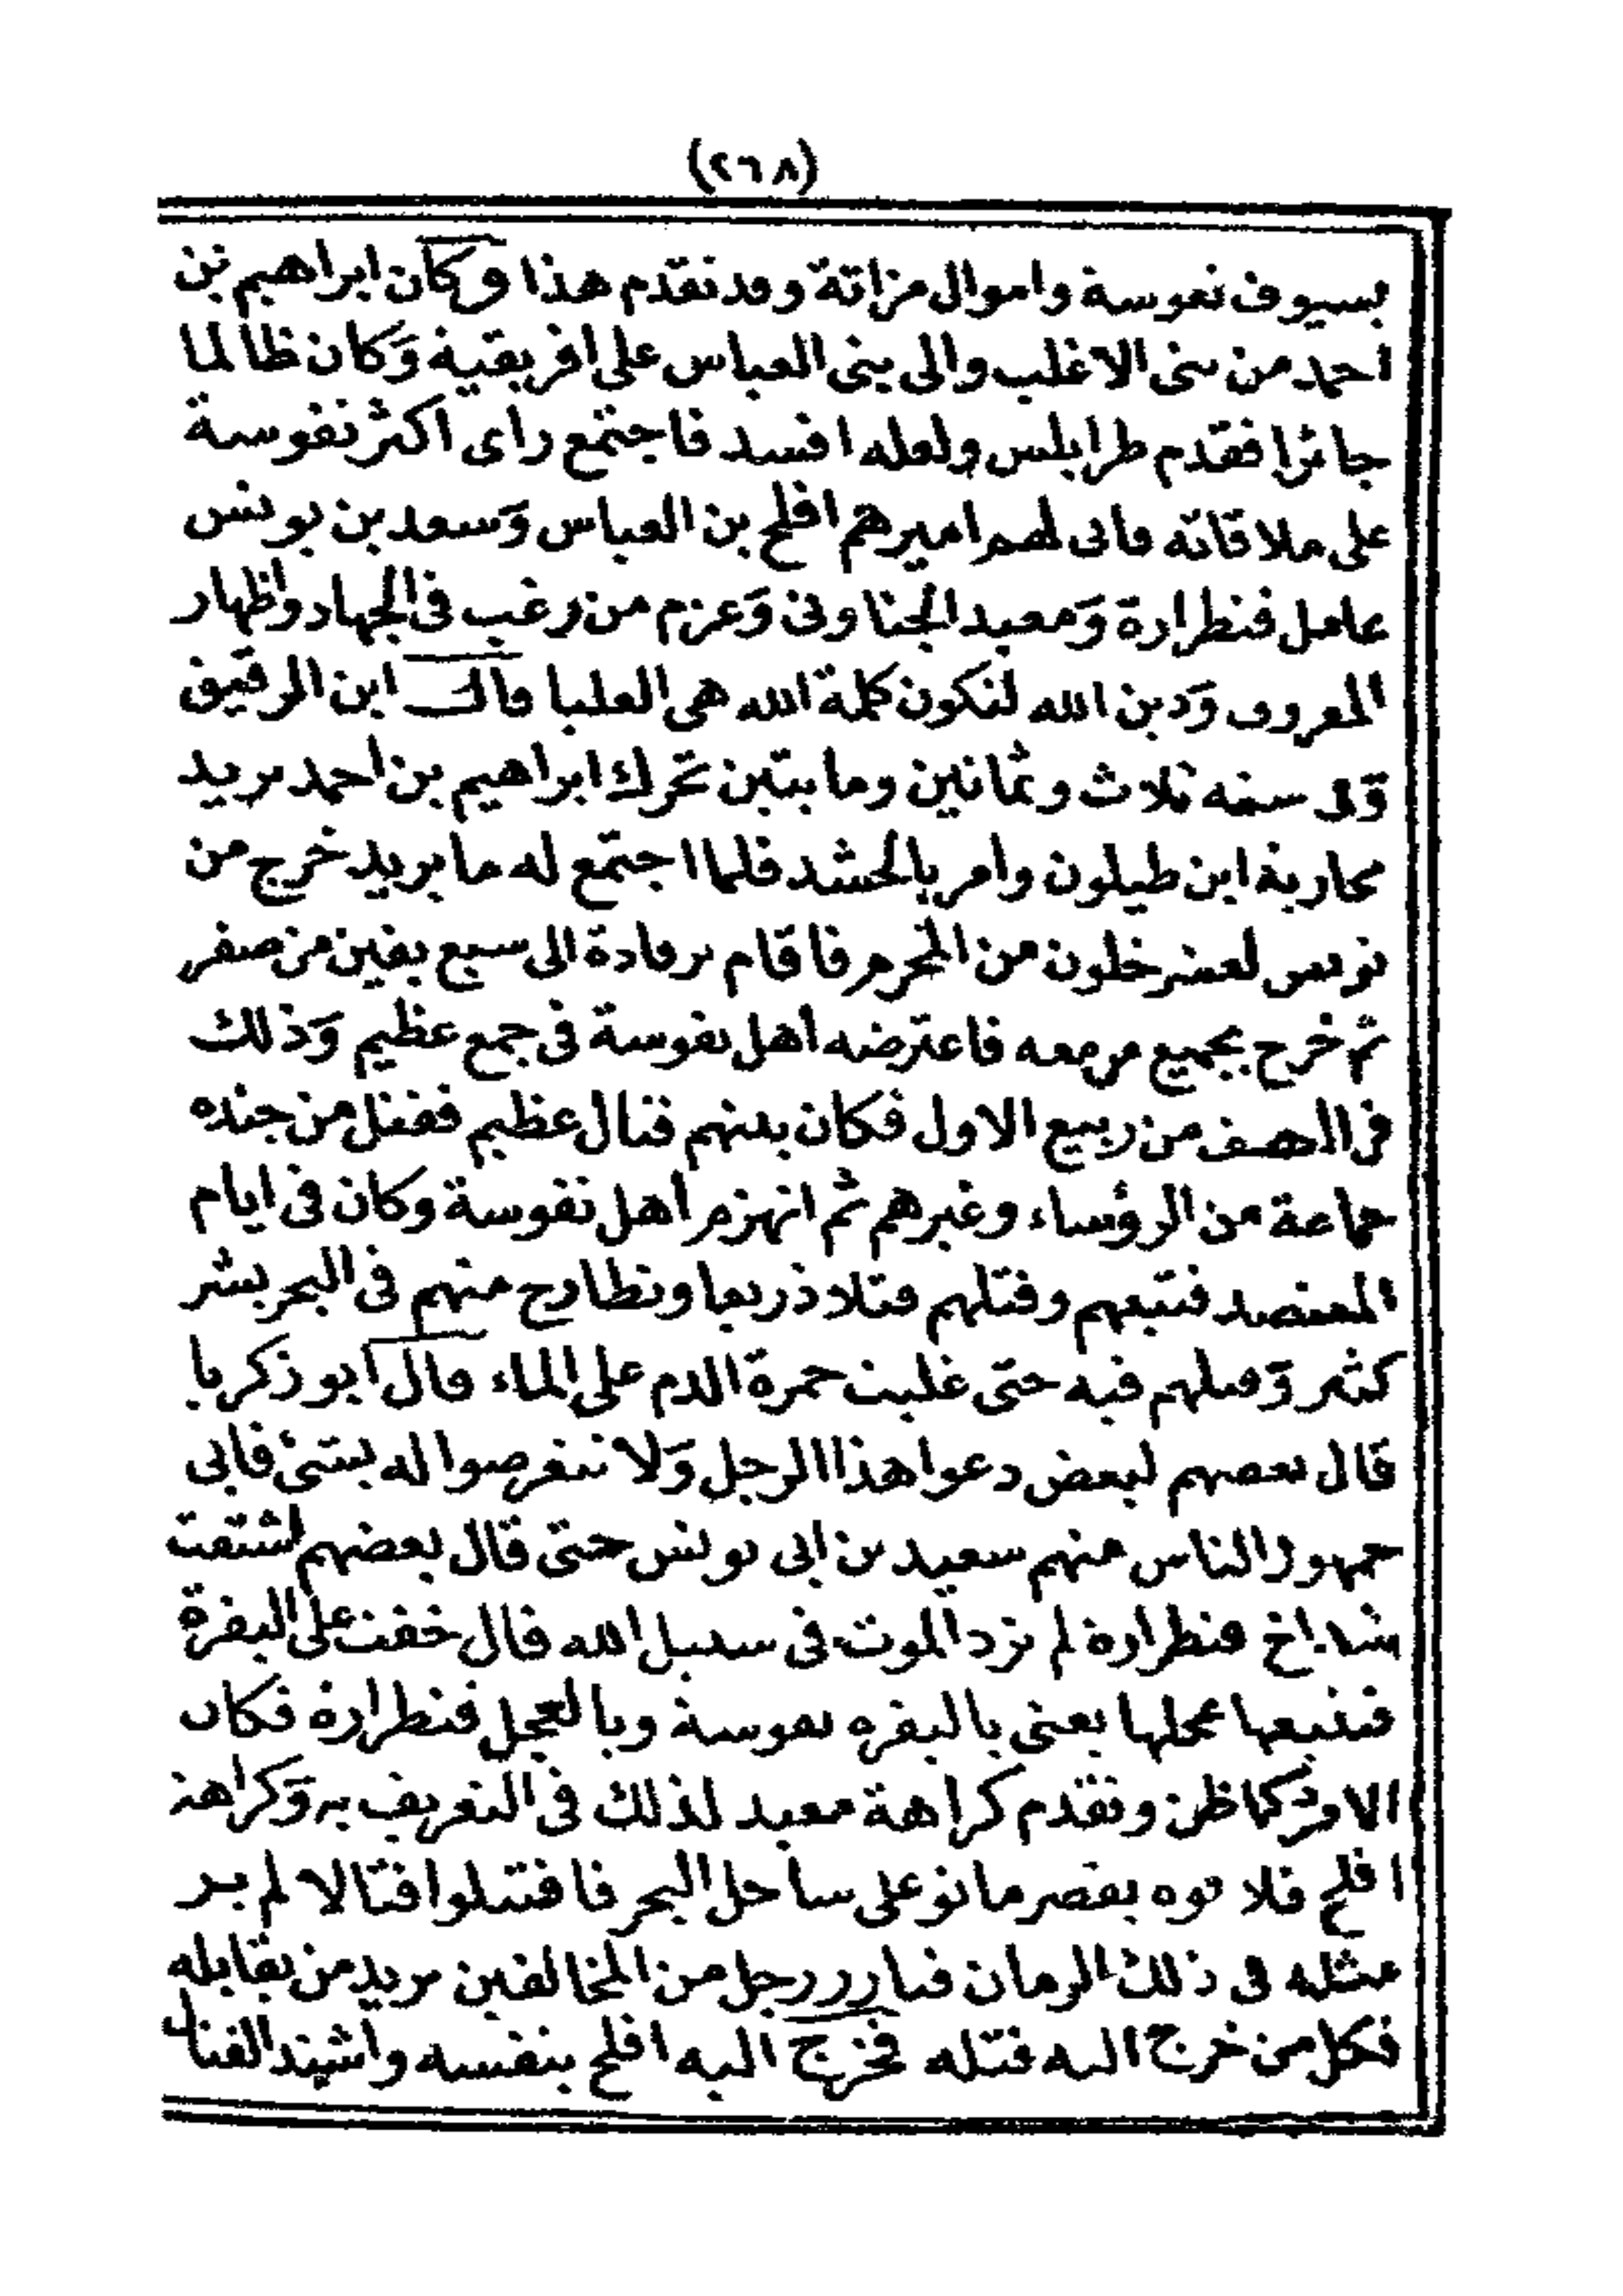 (٢٦٨)
بسيوف نفوسة واموال مزاتة وقد تقدم هذا وكان ابراهيم بن
احمد من بنى الاغلب والى بنى العباس على افريقية وَكان ظالما
جائرا فقدم طرابلس ولعله افسد فاجتمع راى اكثر نفوسة
على ملاقاته فابى لهم اميرهم افلح بن العباس وَسعد بن يونس
عامل قنطرارة وَمعبد الجناونى وَعزم من رغب فى الجهاد واظهار
المعروف وَدين الله لتكون كلمة الله هى العليا قال ابن الرقيق
وَفى سنة ثلاث وثمانين ومايتين تحرك ابراهيم بن احمد يريد
محاربة ابن طيلون وامر بالحشد فلما اجتمع له ما يريد خرج من
تونس لعشر خلون من المحرم فاقام برقادة الى سبع بقين من صفر
ثم خرج بجميع من معه فاعترضه اهل نفوسة فى جمع عظيم وَذلك
فى النصف من ربيع الاول فكان بينهم قتال عظيم فقتل من جنده
جماعة من الرؤساء وغيرهم ثم انهزم اهل نفوسة وكان فى ايام
المعتضد فتبعهم وقتلهم قتلا ذريعا وتطارح منهم فى البحر بشر
كثير وَقتلهم فيه حتى غلبت حمرة الدم على الماء قال ابو زكريا
قال بعضهم لبعض دعوا هذا الرجل وَلا تتعرضوا له بشئ فابى
جمهور الناس منهم سعيد بن ابى يونس حتى قال بعضهم اشتقت
شداخ قنطرارة لم ترد الموت فى سبيل الله قال خفت على البقرة
فتتبعها عجلها يعنى بالبقره نفوسة وبالعجل قنطرارة فكان
الامر كما ظن وتقدم كراهة معبد لذلك فى التعريف به وَكراهة
افلح فلاقوه بقصر مانو على ساحل البحر فاقتتلوا قتالا لم ير
مثله فى ذلك الزمان فبارز رجل من المخالفين يريد من يقابله
فكل من خرج اليه قتله فخرج اليه افلح بنفسه واشتد القتال